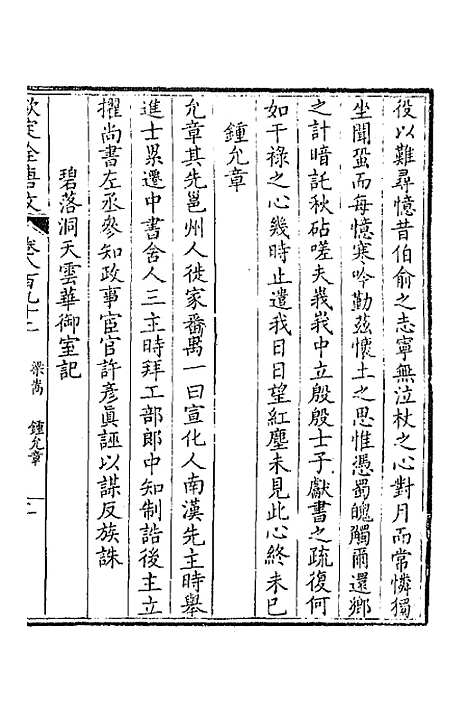 役以難尋憶昔伯俞之志寧無泣杖之心對月而常憐獨
坐聞蛩而每憶寒吟勤茲懷土之思惟憑蜀魄觸爾還鄉
之計暗託秋砧嗟夫峩峩中立殷殷士子獻書之疏復何
如干祿之心幾時止遣我日日望紅塵未見此心終未已
鍾允章
允章其先邕州人徙家番禺一曰宣化人南漢先主時舉
進士累遷中書舍人三主時拜工部郎中知制誥後主立
擢尚書左丞參知政事宦官許彥眞誣以謀反族誅
碧落洞天雲華御室記
欽定全唐文 卷八百九十二 梁嵩 鍾允章